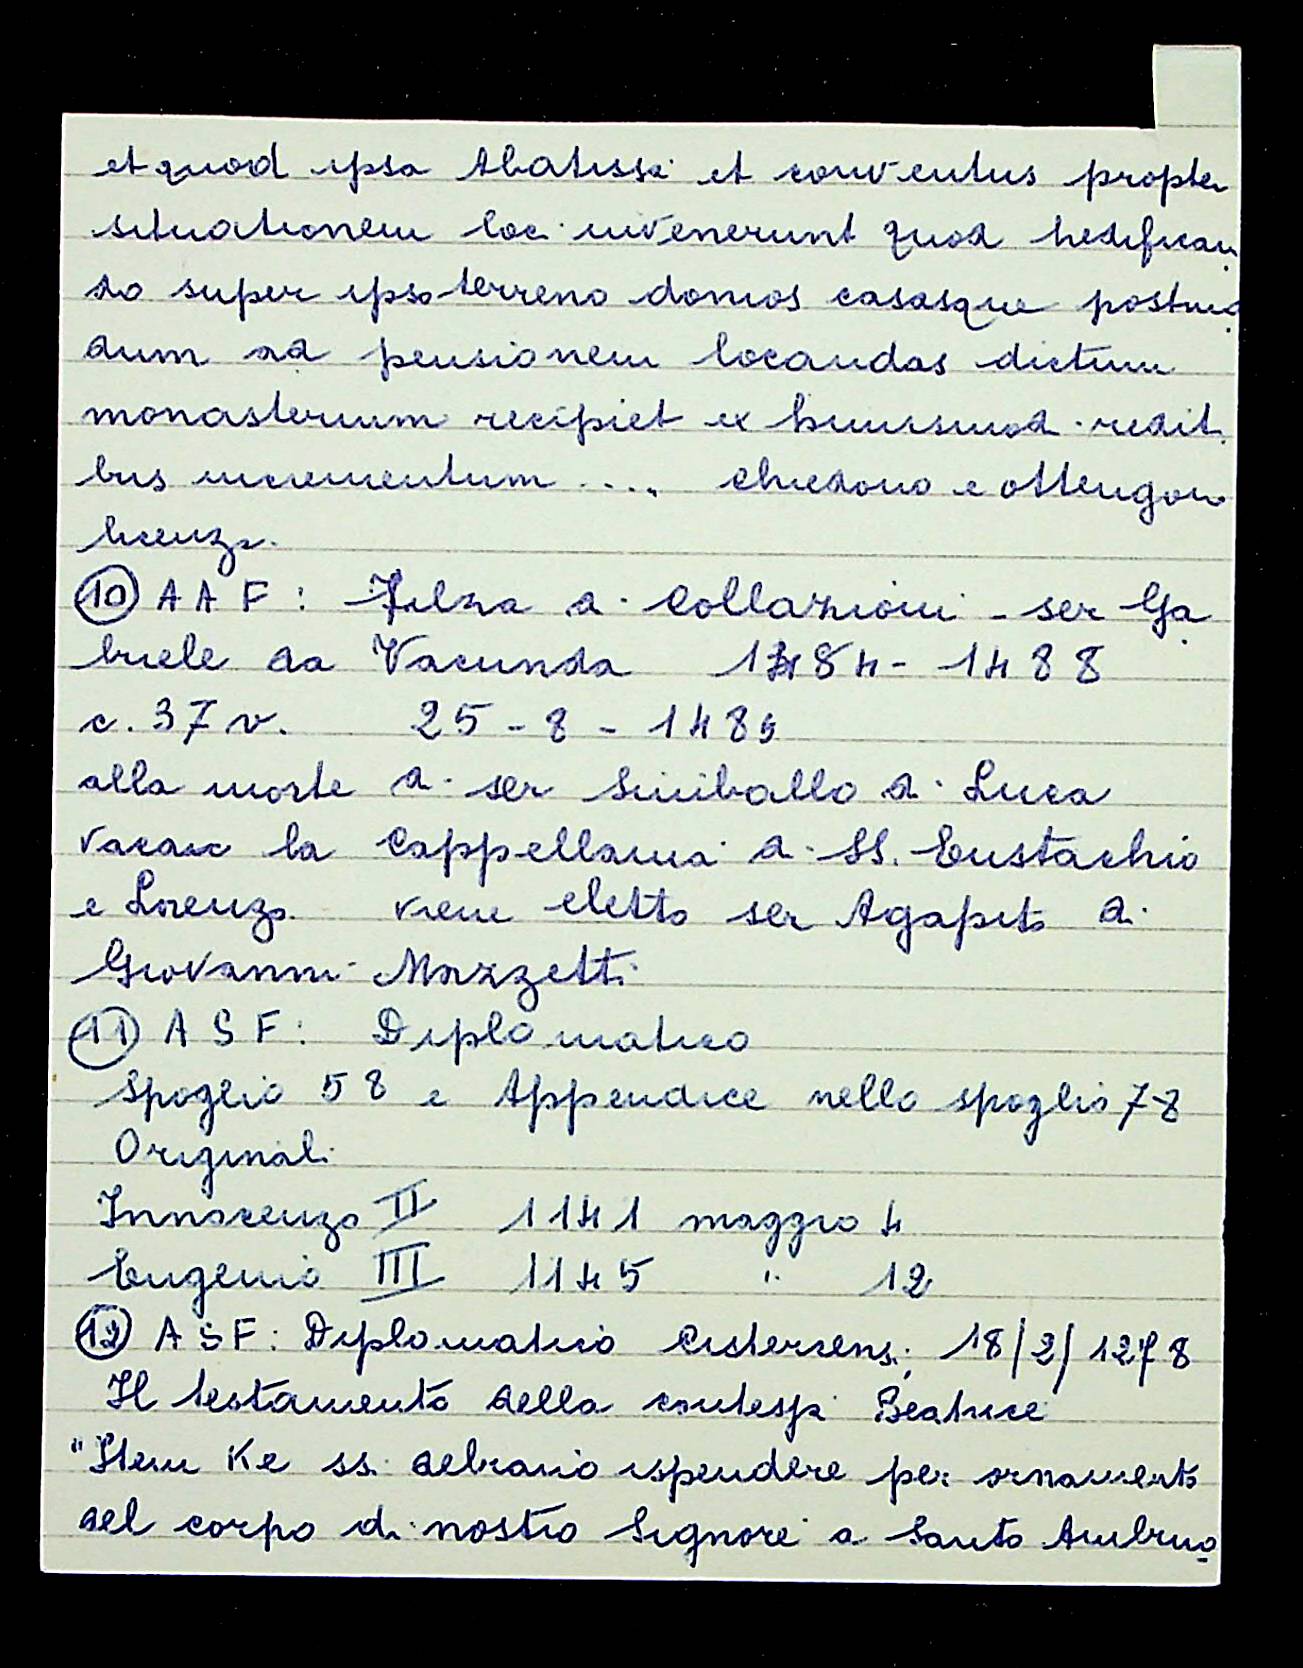 et quod ipsa Abatissa et conventus propter
situationem loci invenerunt quod hedifican
do super ipso terreno domos casasque postmo
dum ad pensionem locandas dictum
monasterium recipiet ex huiusmodi redit.
bus incrementum .... chiedono e ottengono
licenza.
(10) A A F : Filza di Collazioni - ser Ga
briele da Vacunda 1484 - 1488
c. 37 v. 25 - 8 - 1485
alla morte di ser Siniballo di Luca
vacan la Cappellania di SS. Eustachio
e Lorenzo viene eletto ser Agapito di
Giovanni Mazzetti
(11) A S F : Diplomatico
Spoglio 58 e Appendice nello spoglio 78
Originali
Innocenzo II 1141 maggio 4
Eugenio III 1145 " 12
(12) A S F : Diplomatico Cistercensi, 18/2/1278
Il testamento della contessa Beatrice
"Item Ke ss. debiano ispendere per ornamento
del corpo di nostro Signore a Santo Ambruo